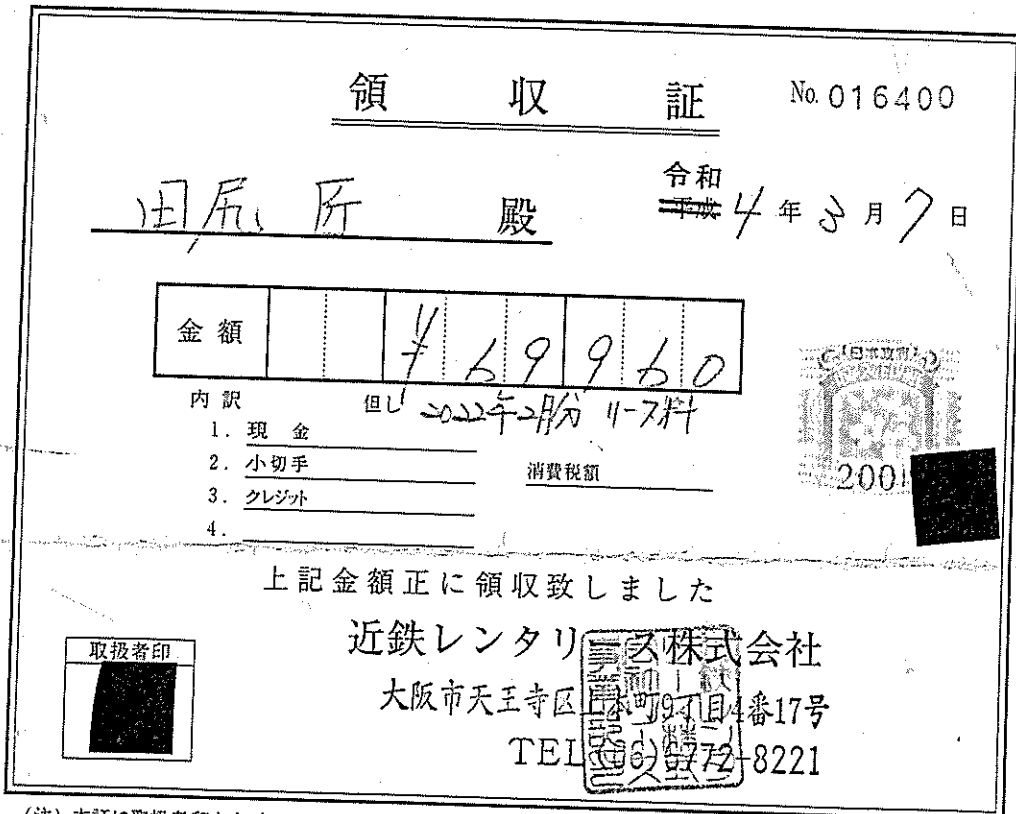 領収証
No.016400
田尻 所 殿
令和
平成 4年3月7日
金額 ¥69960
内訳 但し 2022年2月分 リース料
1. 現金
2. 小切手 消費税額
3. クレジット
4.
日本政府
200
上記金額正に領収致しました
近鉄レンタリース株式会社
取扱者印
大阪市天王寺区上本町9丁目4番17号
TEL(06)6772-8221